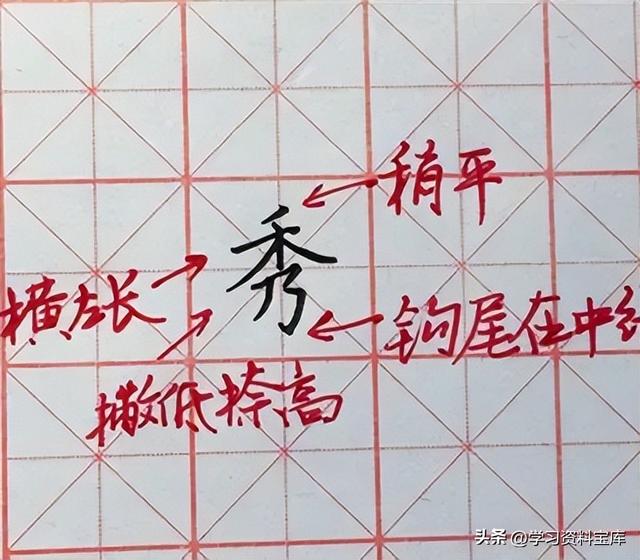 稍平
秀
横左长
钩尾在中
撇低捺高
头条 @学习资料宝库